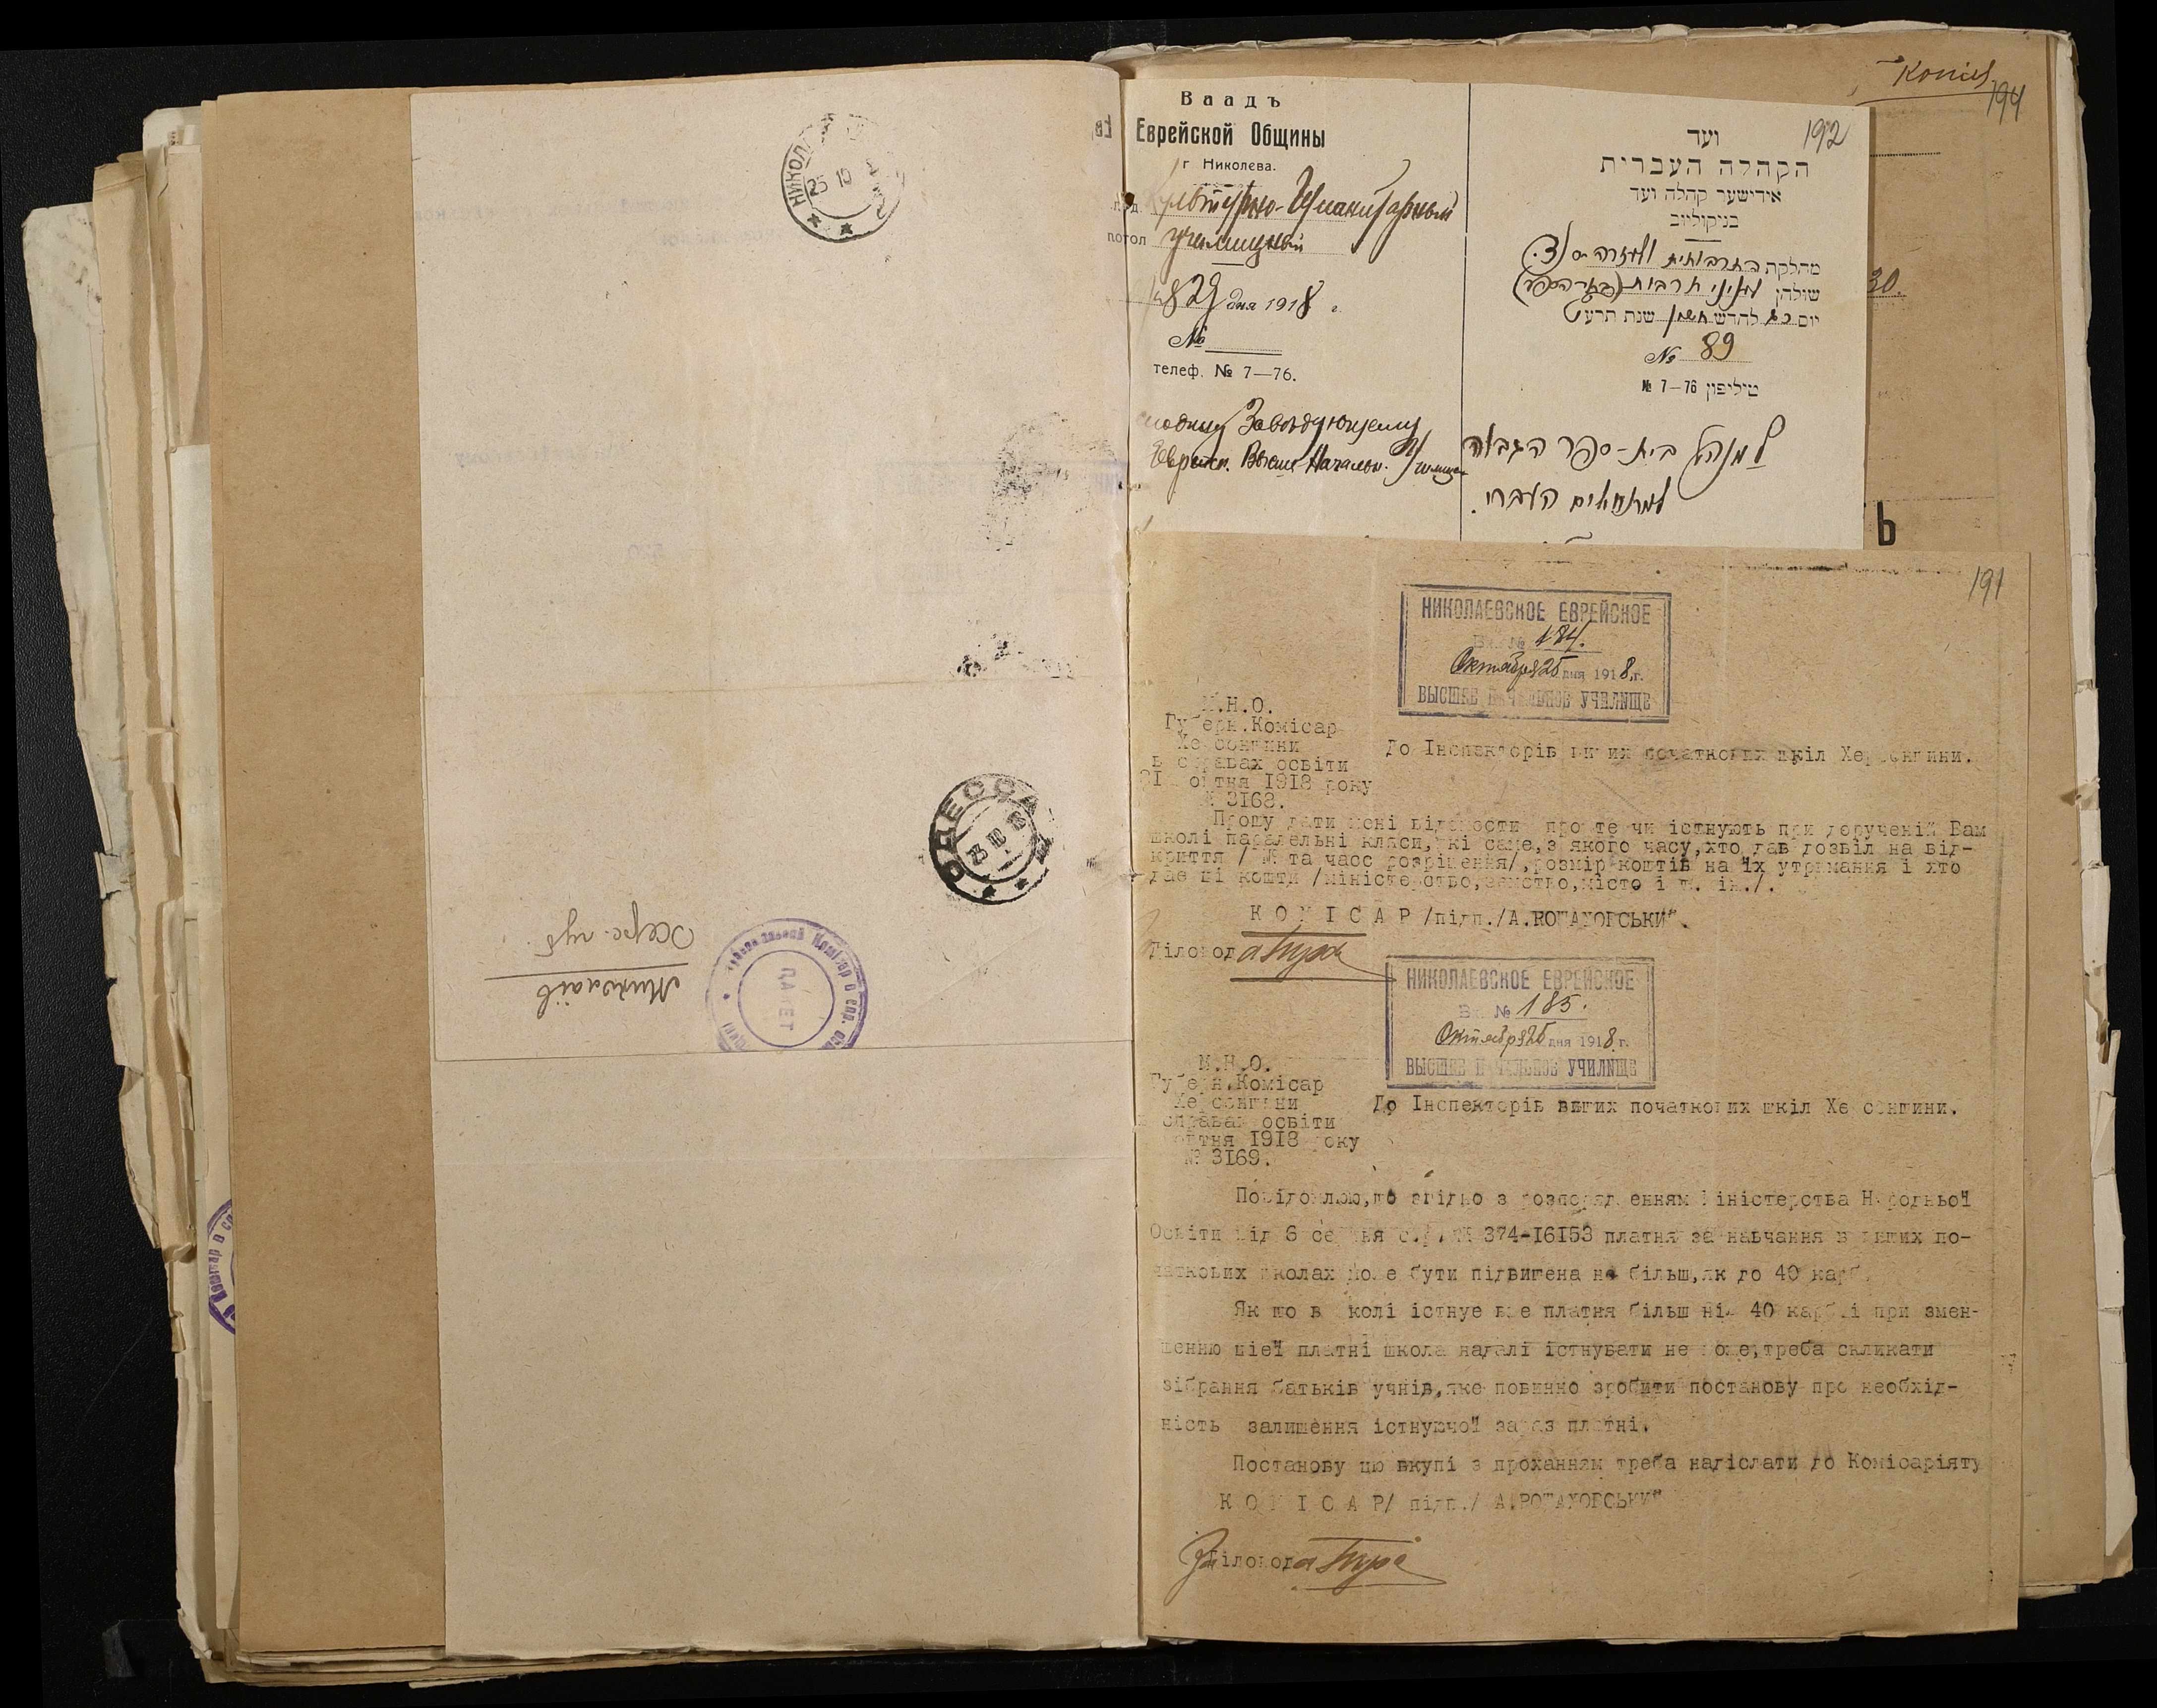 25 10
ОДЕССА
23 10 18
Миколаїв
Херс. губ.
Комісар о спр.
194
30.
192
Ваадъ
Еврейской Общины
г Николева.
Культурно-Гуманитарный
училищный
29 дня 1918 г.
№
телеф. № 7—76.
Заведующему
Еврейск. Высш. Начальн.
ועד
הקהלה העברית
אידישער קהלה ועד
בניקולייוב
מחלקת התרבותית
שולחן עניני תרבות (בתי הספר)
יום כג לחדש חשון שנת תרעט
№ 89
טיליפון 76–7 №
למנהל בית-ספר הגבוה
למתחילים העברי.
191
НИКОЛАЕВСКОЕ ЕВРЕЙСКОЕ
Вх. № 184.
Октября 25 дня 1918.г.
ВЫСШЕЕ НАЧАЛЬНОЕ УЧИЛИЩЕ
М.Н.О.
Губерн.Комісар
Херсонщини
в справах освіти
21 жовтня 1918 року
№ 3168.
До Інспекторів вищих початкових шкіл Херсонщини.
Прошу дати мені відомости про те чи істнують при дорученій Вам
школі паралельні кляси,які саме,з якого часу,хто дав дозвіл на від-
криття / № та часс розрішення/,розмір коштів на їх утримання і хто
дає ці кошти /міністерство,земство,місто і т. ін./.
К О М І С А Р /підп./А.РОТАХОВСЬКИЙ.
Діловод
НИКОЛАЕВСКОЕ ЕВРЕЙСКОЕ
Вх. № 185.
Октября 25 дня 1918.г.
ВЫСШЕЕ НАЧАЛЬНОЕ УЧИЛИЩЕ
М.Н.О.
Губерн.Комісар
Херсонщини
справах освіти
жовтня 1918 року
№ 3169.
До Інспекторів вищих початкових шкіл Херсонщини.
Повідомлюю,що згідно з розпорядженням Міністерства Народньої
Освіти від 6 серпня с.р. № 374-16153 платня за навчання в вищих по-
чаткових школах може бути підвищена не більш,як до 40 карб.
Як що в школі істнує вже платня більш ніж 40 карб.і при змен-
шенню цієї платні школа надалі істнувати не може,треба скликати
зібрання батьків учнів,яке повинно зробити постанову про необхід-
ність залишення істнуючої зараз платні.
Постанову цю вкупі з проханням треба надіслати до Комісаріяту
К О М І С А Р/ підп./ А.РОТАХОВСЬКИЙ
За Діловода